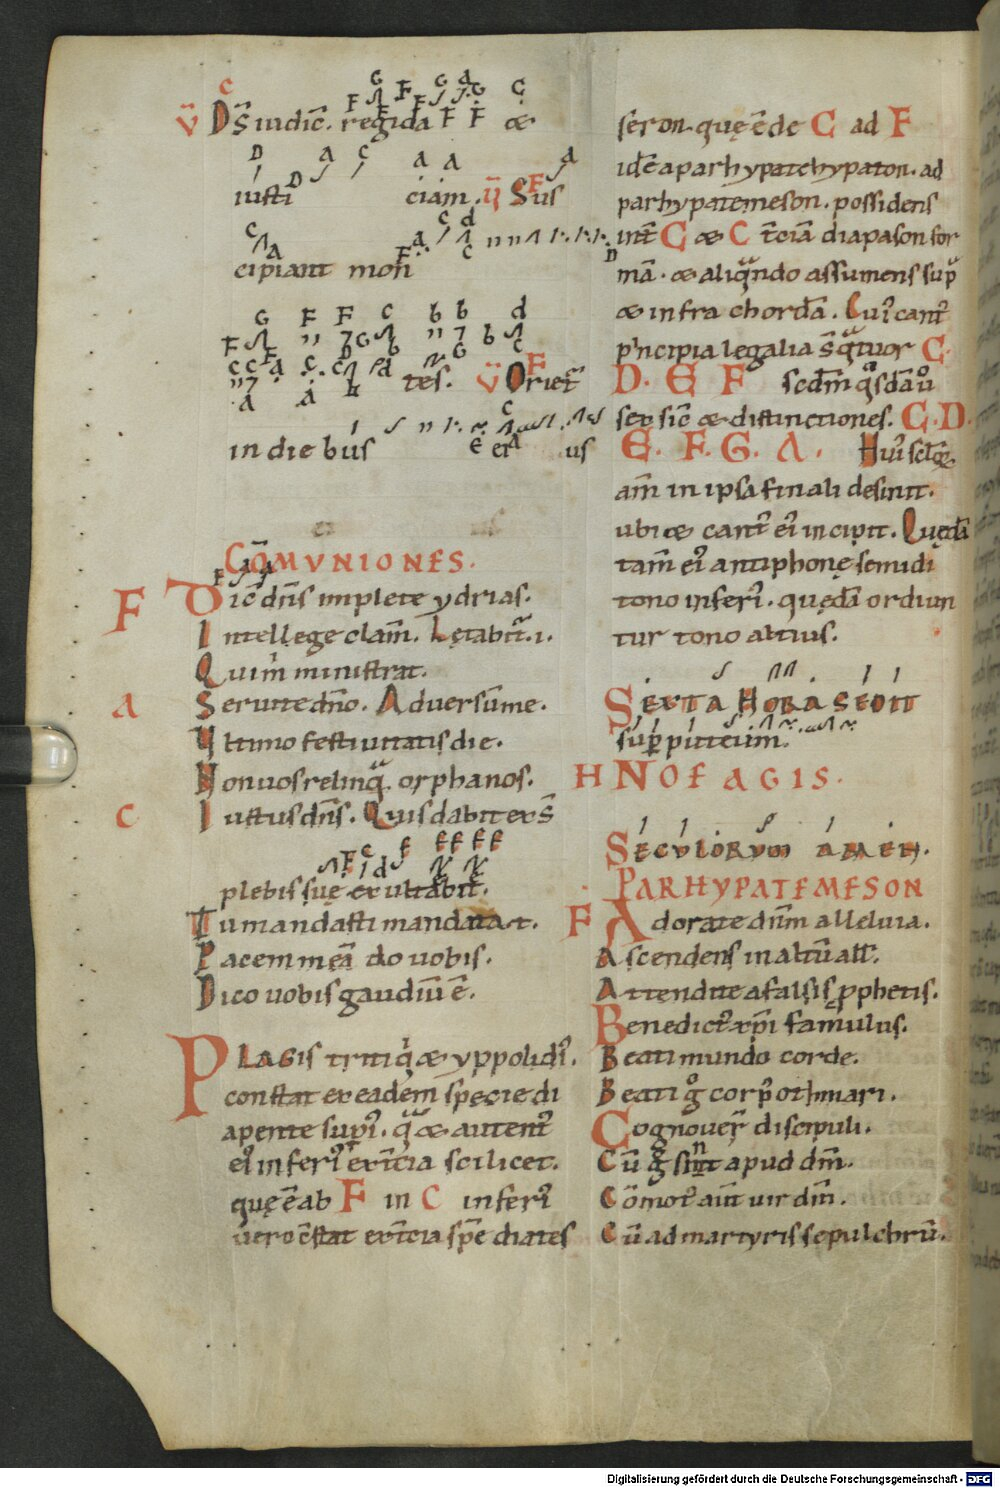 V̄ Ds̄ iudic̄. regi da F F æ
iusti ciam. V̄ Sus
cipiant mon̄
tes̄. V̄ Oriet᷑
in die bus ei us
COM̄VNIONES.
F Dic̄ dn̄s implete ydrias.
Intellege clam̄. Lętabit᷑. i.
Qui m̄ ministrat.
A Seruite dn̄o. Aduersum̄ me.
Ultimo festiuitatis die.
Non uos relinqᷓ orphanos.
C Iustus dn̄s. Quis dabit ex s̄
plebis suę exultabit.
Tu mandasti mandata t.
Pacem mēa do uobis.
Dico uobis gaudiū ē.
PLAGIS triti q̇ æ yppolidi᷑.
constat ex eadem specie di
apente supi᷑. qᷓ æ autent᷑
ei᷑ inferi᷑ exr̄cia scilicet.
quę ē ab F in C inferi᷑
uero c̄stat exr̄cia spē diates
seron. quę ē de C ad F
idē a parhypatehypaton. ad
parhypatemeson. possidens
int̄ C æ C t̄ciā diapason for
mā. æ aliqᷓndo assumens sup̄
æ infra chordā. Cui᷑ cant᷑
p'ncipia legalia s̄ qᷓtuor C.
D. E F scdm̄ qᷓsdā uͦ
sex sic̄ æ distinctiones. C. D.
E. F. G. A. Hui᷑ sclo̧ꝝ
am̄ in ipsa finali desinit.
ubi æ cant᷑ ei᷑ incipit. Quędā
tam̄ ei᷑ antiphonę semidi
tono inferi᷑. quędā ordiun
tur tono altius.
SEXTA HORA SEDIT
sup̄ puteum.
H NOFAGIS.
SECVLORVM AMEN.
PARHYPATEMESON
F Adorate dnm̄ alleluia.
Ascendens in altū all̄.
Attendite a falsis ꝓphetis.
Benedict᷑ xp̄i famulus.
Beati mundo corde.
Beati gͦ corp̄ othmari.
Cognouer̄ discipuli.
Cū gͦ sint apud dm̄.
Cōmot᷑ aūt uir dm̄.
Cū ad martyris sepulchrū.
Digitalisierung gefördert durch die Deutsche Forschungsgemeinschaft - DFG